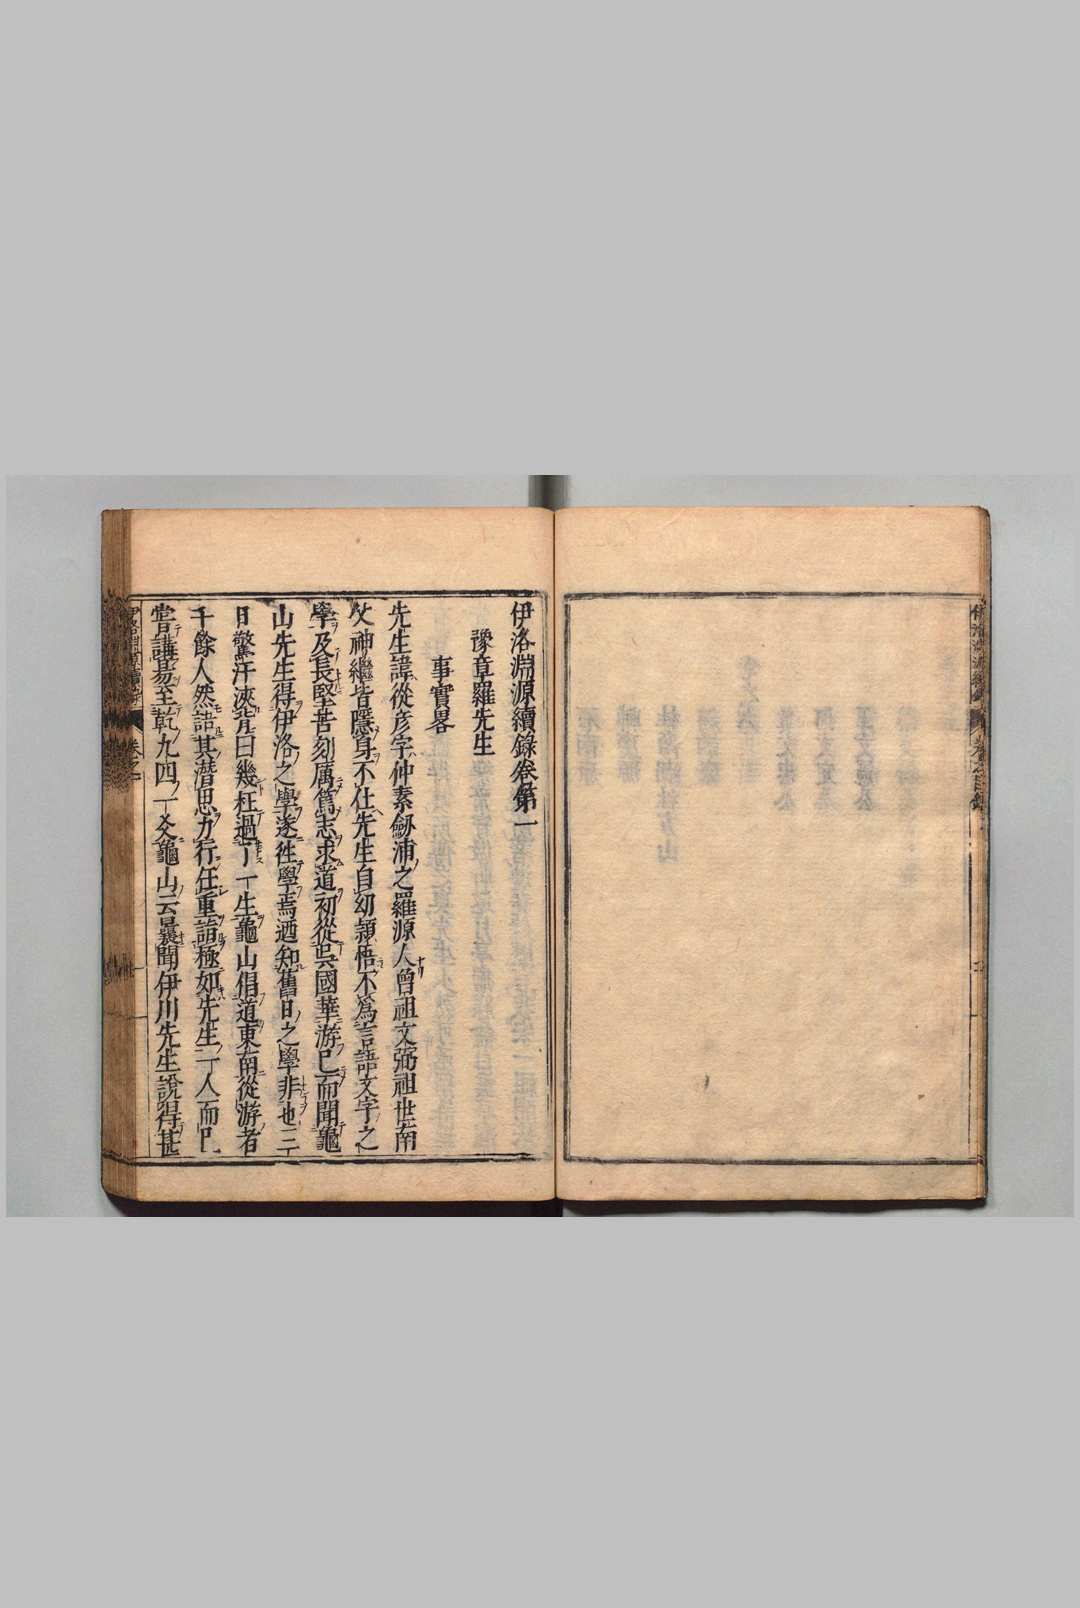 伊洛淵源續錄卷第一
豫章羅先生
事實畧
先生諱從彦字仲素劒浦之羅源人曾祖文弼祖世南
父神繼皆隱身不仕先生自幼頴悟不爲言語文字之
學及長堅苦刻厲篤志求道初從吳國華游已而聞龜
山先生得伊洛之學遂徃學焉迺知舊日之學非也三
日驚汗浹背曰幾枉過了一生龜山倡道東南從游者
千餘人然語其潛思力行任重詣極如先生一人而已
嘗講易至乾九四一爻龜山云曩聞伊川先生說得甚